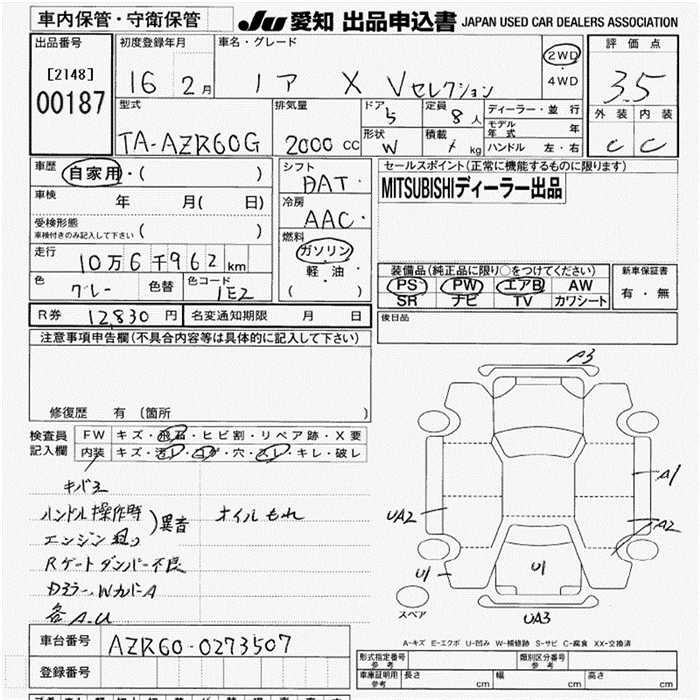 車内保管・守衛保管
JU 愛知 出品申込書 JAPAN USED CAR DEALERS ASSOCIATION
出品番号
[2148]
00187
初度登録年月
16 2月
車名・グレード
ノア X Vセレクション
2WD
4WD
評価点
3.5
外装 内装
C C
型式
TA-AZR60G
排気量
2000 cc
ドア 5
形状 W
定員 8人
積載 kg
ディーラー・並 行
モデル年式 年
ハンドル 左・右
車歴 自家用・( )
車検 年 月( 日)
受検形態
車検付きのみ記入して下さい ( )
走行
10万6千962km
色 グレー 色替 色コード 1E2
シフト
DAT
冷房
AAC
燃料
ガソリン
軽・油・
( )
セールスポイント(正常に機能するものに限ります)
MITSUBISHIディーラー出品
装備品(純正品に限り○をつけてください)
PS PW エアB AW
SR ナビ TV カワシート
新車保証書
有・無
R券 12,830円 名変通知期限 月 日
後日品
注意事項申告欄(不具合内容等は具体的に記入して下さい)
修復歴 有 (箇所 )
検査員記入欄
FW キズ・飛石・ヒビ割・リペア跡・X要
内装 キズ・汚レ・コゲ・穴・スレ・キレ・破レ
ハンドル操作時
エンジン
)異音
オイルもれ
Rゲートダンパー不良
DミラーWカバーA
各A.U
A3
A1
A2
UA2
U1
U1
UA3
スペア
A-キズ E-エクボ U-凹み W-補修跡 S-サビ C-腐食 XX-交換済
車台番号 AZR60-0273507
登録番号
形式指定番号 参考
類別区分番号 参考
車庫証明用 参考 長さ cm 幅 cm 高さ cm